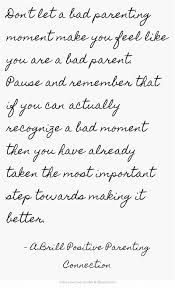 Don't let a bad parenting
moment make you feel like
you are a bad parent.
Pause and remember that
if you can actually
recognize a bad moment
then you have already
taken the most important
step towards making it
better.
- A.Brill Positive Parenting
Connection